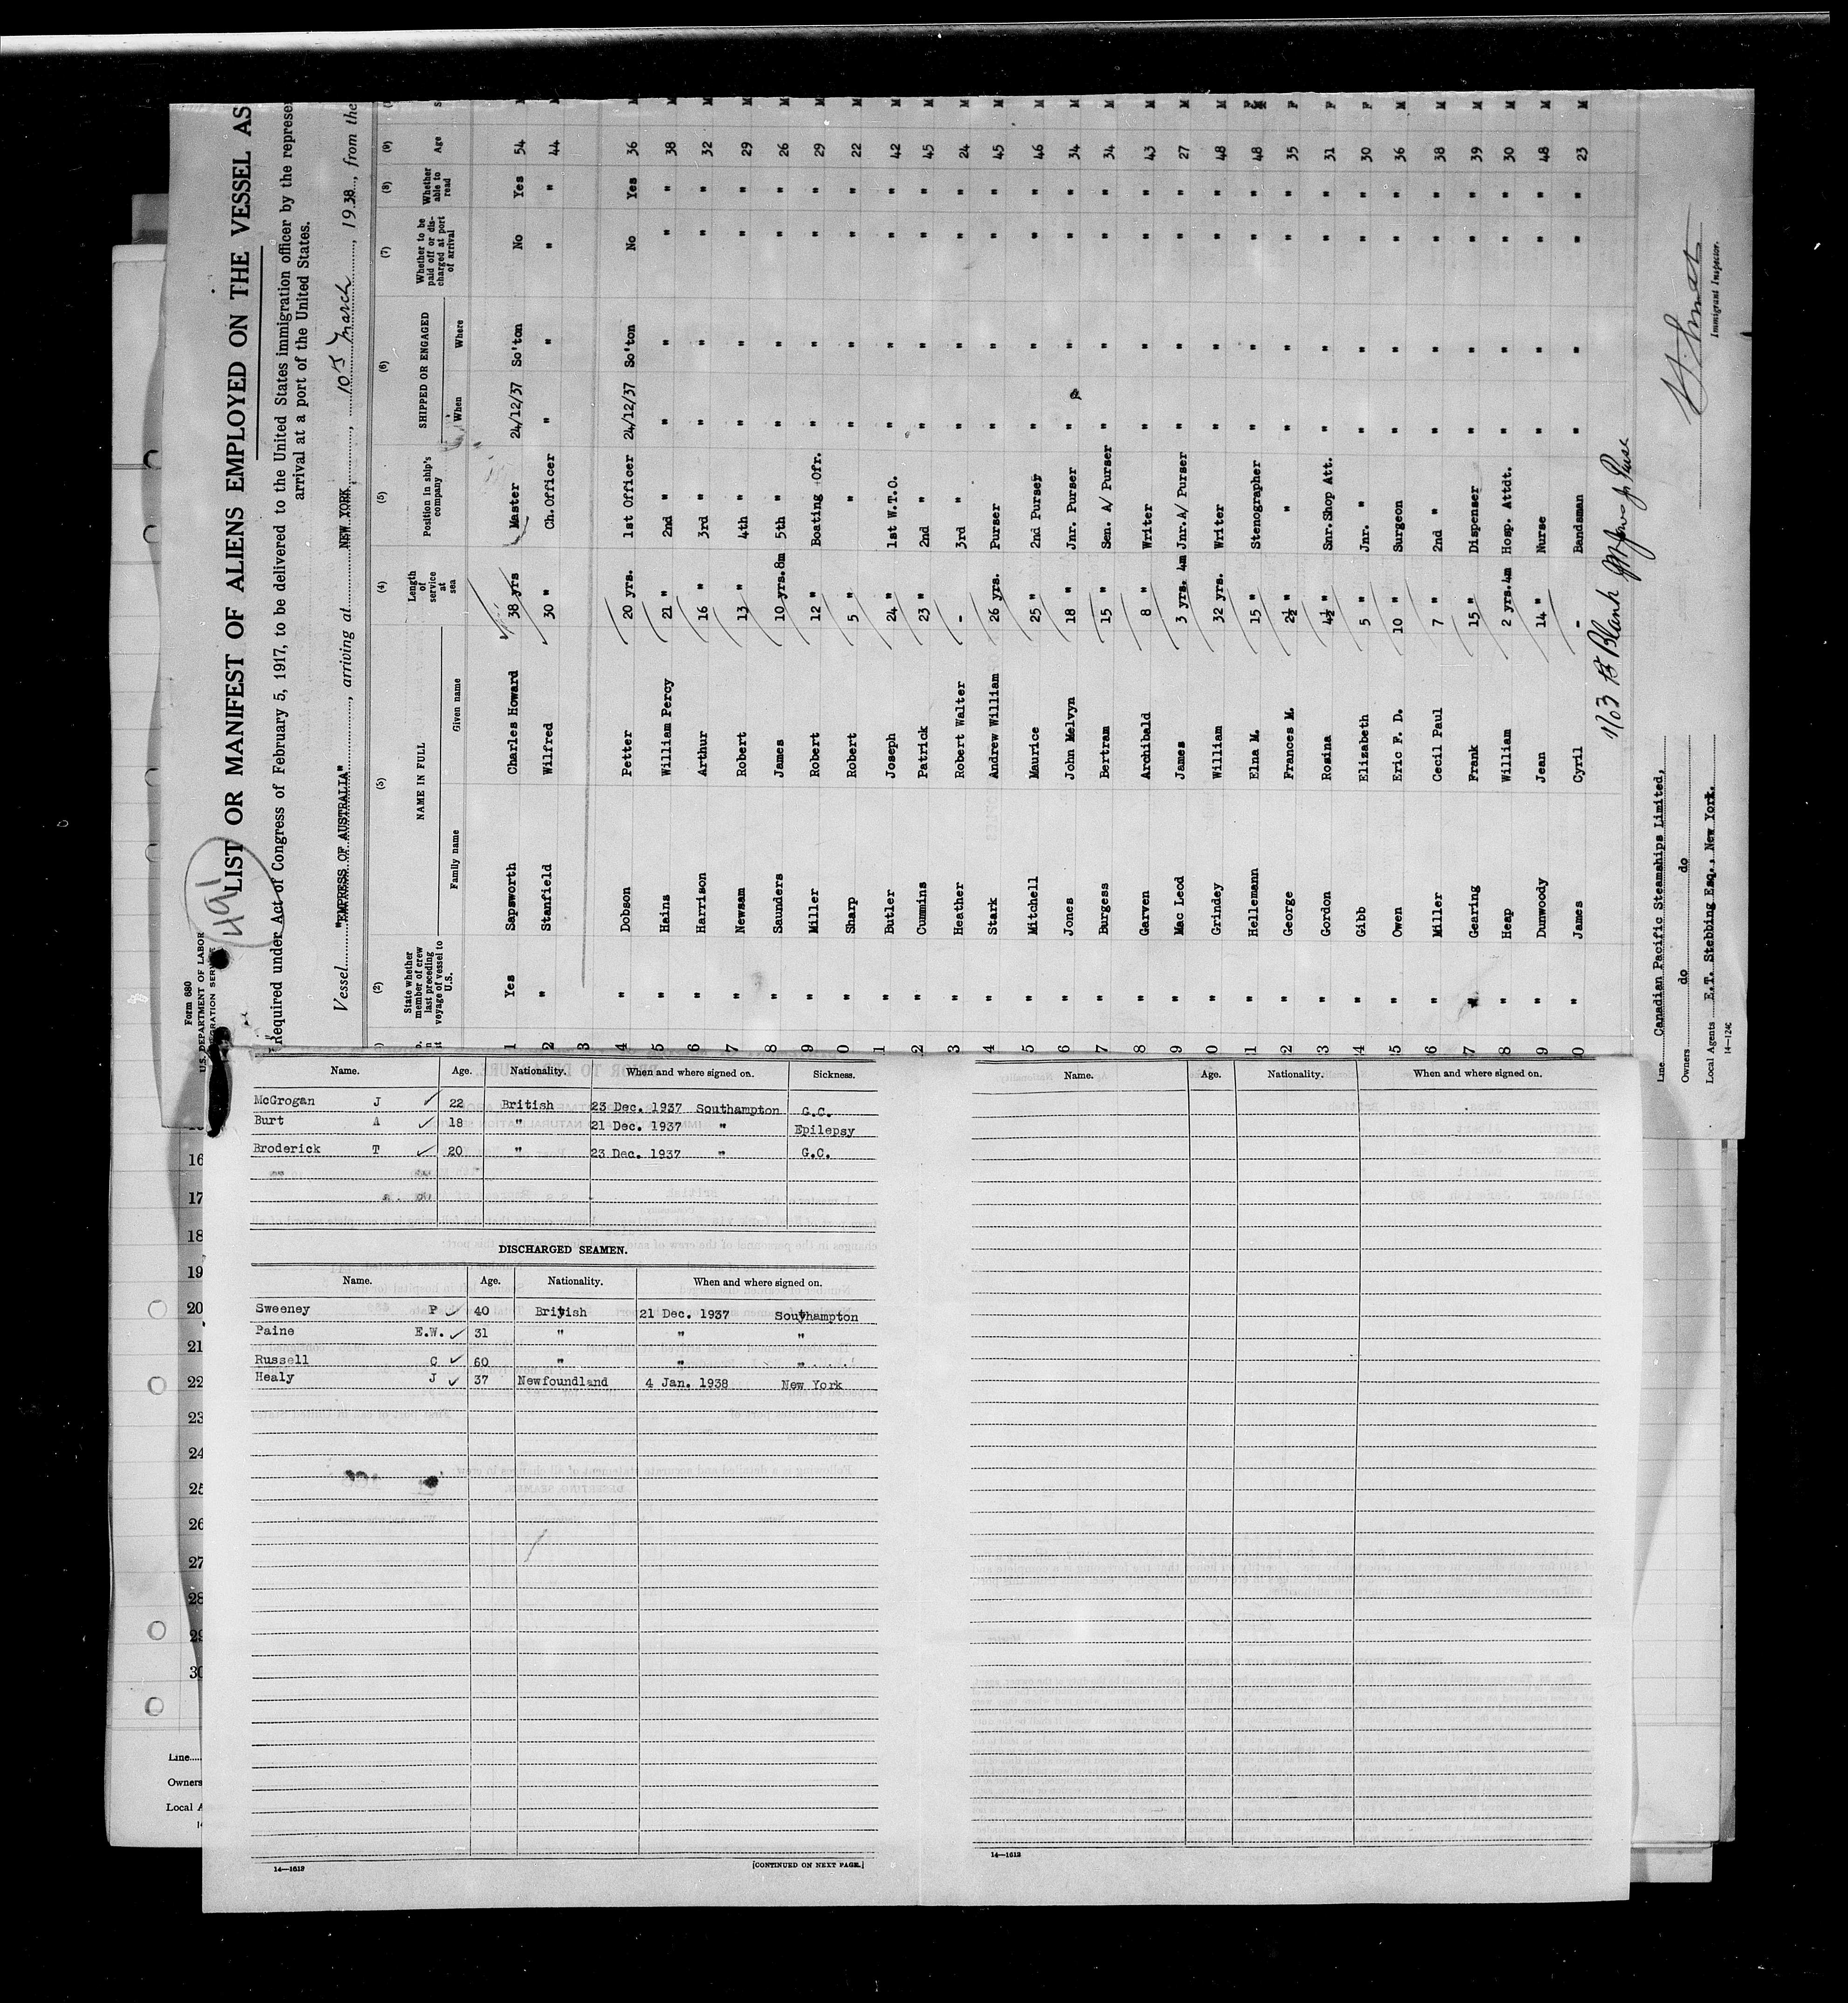 Form 680
U.S. DEPARTMENT OF LABOR
491
LIST OR MANIFEST OF ALIENS EMPLOYED ON THE VESSEL AS
Required under Act of Congress of February 5, 1917, to be delivered to the United States immigration officer by the represen
arrival at a port of the United States.
Vessel "EMPRESS OF AUSTRALIA", arriving at NEW YORK, 10th March, 1938, from the
(2) (3) (4) (5) (6) (7) (8) (9)
State whether member of crew last preceding voyage of vessel to U.S. NAME IN FULL Family name Given name Length of service at sea Position in ship's company SHIPPED OR ENGAGED When Where Whether to be paid off or discharged at port of arrival Whether able to read Age
1 Yes Sapsworth Charles Howard 38 yrs Master 24/12/37 So'ton No Yes 54 M
2 " Stanfield Wilfred 30 " Ch.Officer " " " " 44 M
3
4 " Dobson Petter 20 yrs. 1st Officer 24/12/37 So'ton No Yes 36 M
5 " Hains William Percy 21 " 2nd " " " " " 38 M
6 " Harrison Arthur 16 " 3rd " " " " " 32 M
7 " Newsam Robert 13 " 4th " " " " " 29 M
8 " Saunders James 10 yrs.8m 5th " " " " " 26 M
9 " Miller Robert 12 " Boating Ofr. " " " " 29 M
0 " Sharp Robert 5 " " " " " " 22 M
1 " Butler Joseph 24 " 1st W.T.O. " " " " 42 M
2 " Cummins Patrick 23 " 2nd " " " " " 45 M
3 " Heather Robert Walter - 3rd " " " " " 24 M
4 " Stark Andrew William 26 yrs. Purser " " " " 45 M
5 " Mitchell Maurice 25 " 2nd Purser " " " " 46 M
6 " Jones John Melvyn 18 " Jnr. Purser " " " " 34 M
7 " Burgess Bertram 15 " Sen. A/ Purser " " " " 34 M
8 " Garven Archibald 8 " Writer " " " " 43 M
9 " Mac Leod James 3 yrs. 4m Jnr.A/ Purser " " " " 27 M
0 " Grindey William 32 yrs. Writer " " " " 48 M
1 " Hellemann Elna M. 15 " Stenographer " " " " 48 F
2 " George Frances M. 2½ " " " " " " 35 F
3 " Gordon Rosina 4½ " Snr.Shop Att. " " " " 31 F
4 " Gibb Elizabeth 5 " Jnr. " " " " " 30 F
5 " Owen Eric F. D. 10 " Surgeon " " " " 36 M
6 " Miller Cecil Paul 7 " 2nd " " " " " 38 M
7 " Gearing Frank 15 " Dispenser " " " " 39 M
8 " Heap William 2 yrs.4m Hosp. Attdt. " " " " 30 M
9 " Dunwoody Jean 14 " Nurse " " " " 48 M
0 " James Cyril - Bandsman " " " " 23 M
Line Canadian Pacific Steamships Limited,
Owners do do
Local Agents E.T. Stebbing Esq., New York.
14—1240
Immigrant Inspector.
Name. Age. Nationality. When and where signed on. Sickness.
McGrogan J 22 British 23 Dec. 1937 Southampton G.C.
Burt A 18 " 21 Dec. 1937 " Epilepsy
Broderick T 20 " 23 Dec. 1937 " G.C.
DISCHARGED SEAMEN.
Name. Age. Nationality. When and where signed on.
Sweeney P 40 British 21 Dec. 1937 Southampton
Paine E.W. 31 " " "
Russell C 60 " " "
Healy J 37 Newfoundland 4 Jan. 1938 New York
14—1612
[CONTINUED ON NEXT PAGE.]
Name. Age. Nationality. When and where signed on.
14—1612
16
17
18
19
20
21
22
23
24
25
26
27
28
29
30
Line
Owners
Local A